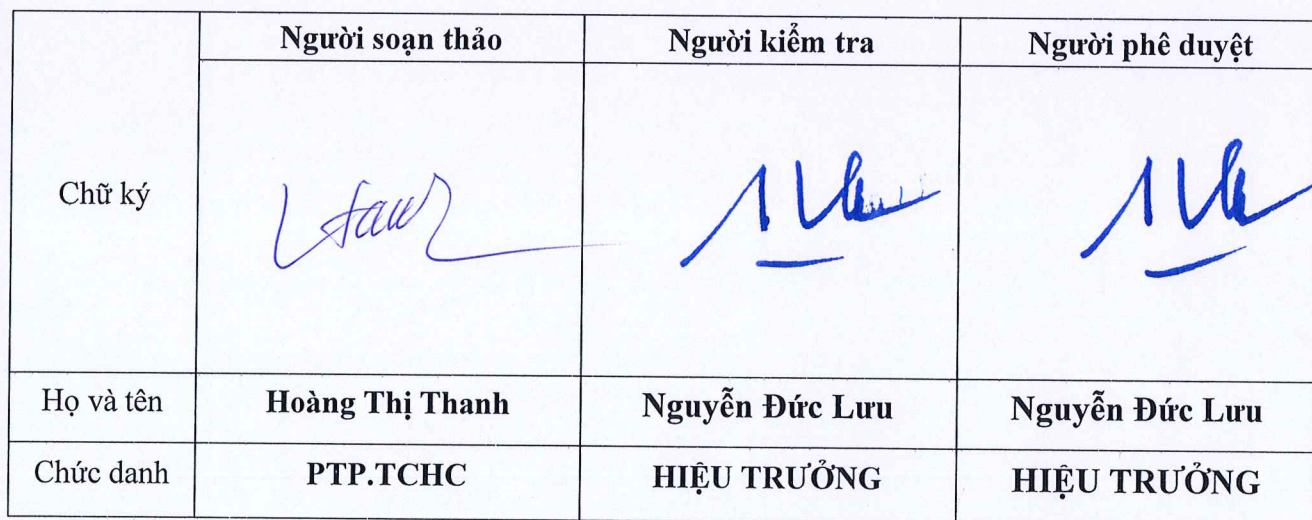 Người soạn thảo Người kiểm tra Người phê duyệt
Chữ ký
Họ và tên Hoàng Thị Thanh Nguyễn Đức Lưu Nguyễn Đức Lưu
Chức danh PTP.TCHC HIỆU TRƯỞNG HIỆU TRƯỞNG